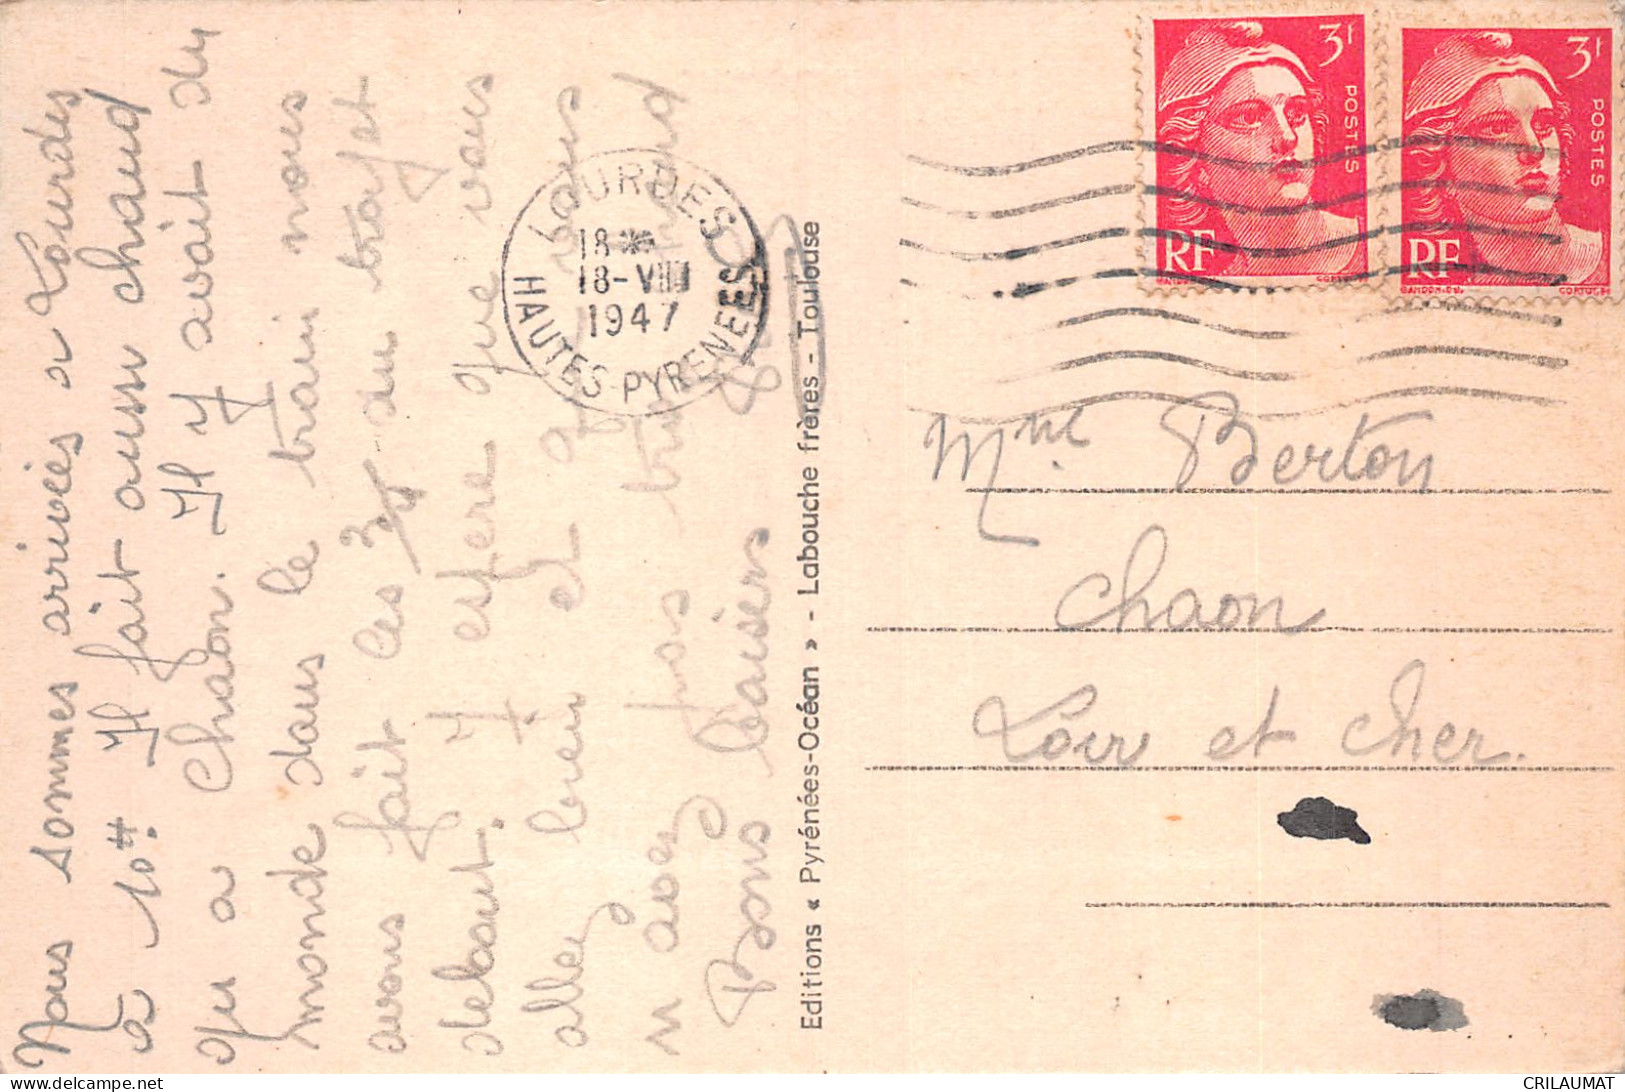 Nous sommes arrivées a Lourdes
a 10H. Il fait aussi chaud
qu a Chaon. Il y avait du
monde dans le train nous
avons fait les 3/4 du trajet
debout. J espère que vous
allez bien et que vous
n avez pas trop chaud
Bons baisers
Editions « Pyrénées-Océan » - Labouche frères - Toulouse
LOURDES
18*
18-VIII
1947
HAUTES-PYRENEES
3F
POSTES
RF
GANDON-DEL
CORTOT-SC
3F
POSTES
RF
GANDON-DEL
CORTOT-SC
Mme Berton
Chaon
Loir et Cher.
CRILAUMAT